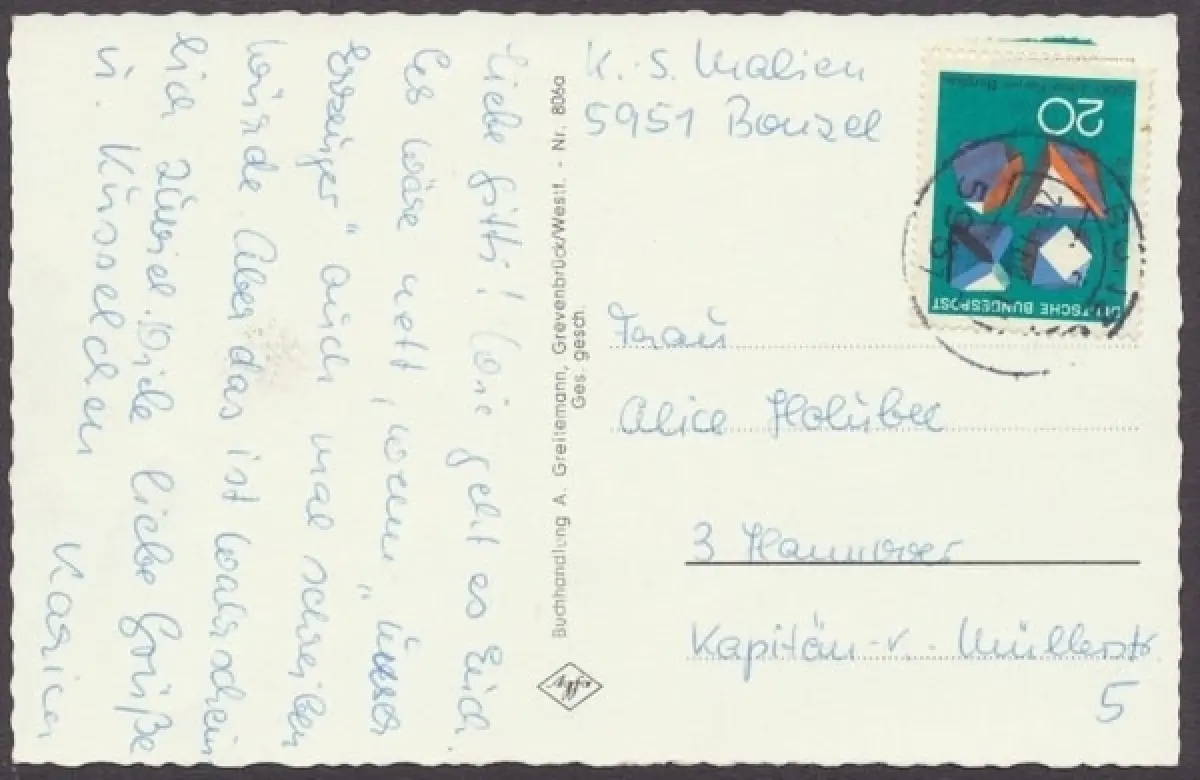 Liebe Gitti! Wie geht es Euch.
Es wäre nett, wenn "unser
Erzeuger" auch mal schreiben
würde. Aber das ist wahrschein
lich zuviel. Viele liebe Grüße
u. Küsschen
Karien
Buchhandlung A. Greitemann, Grevenbrück/Westf. - Nr. 806a
Ges. gesch.
K. S. Malien
5951 Bonzel
20
DEUTSCHE BUNDESPOST
5951
Frau
Alice Holubec
3 Hannover
Kapitän-v.-Müllerstr
5